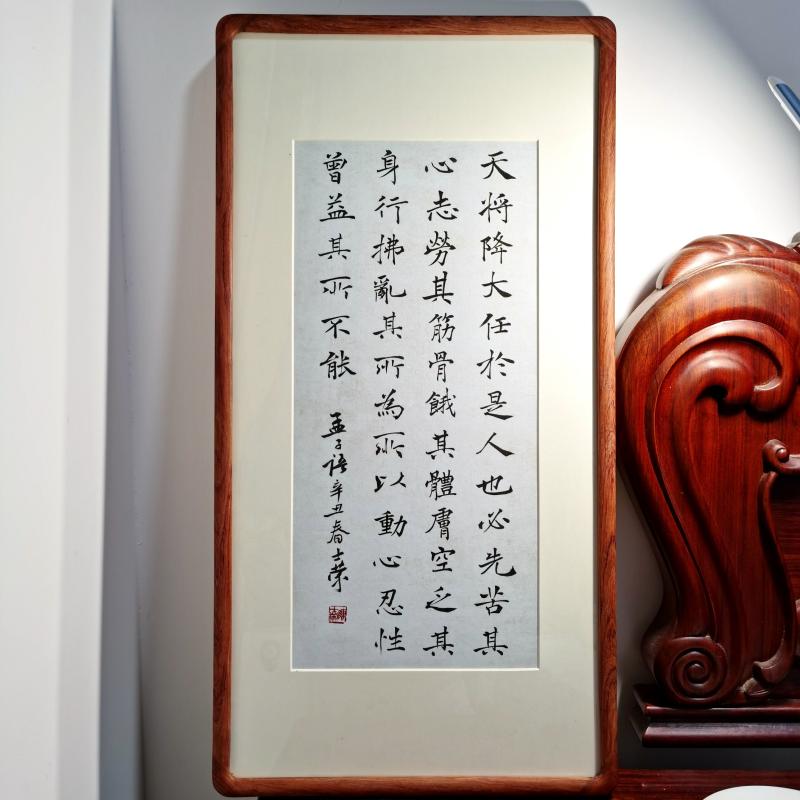 天将降大任於是人也必先苦其
心志勞其筋骨餓其體膚空乏其
身行拂亂其所為所以動心忍性
曾益其所不能
孟子語辛丑春士榮